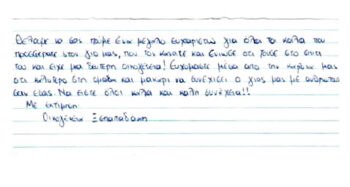 Θέλαμε να σας πούμε ένα μεγάλο ευχαριστώ για όλα τα καλά που
προσφέρατε στον γιο μας, που τον κάνατε και ένιωσε ότι ήταν στο σπίτι
του και είχε μια δεύτερη οικογένεια! Ευχόμαστε μέσα από την καρδιά μας
ότι καλύτερο στη ομάδα και μακάρι να συνεχίσει ο γιος μας με ανθρώπους
σαν εσάς. Να είστε όλοι καλά και καλή συνέχεια!!
Με εκτίμηση
Οικογένεια Ξεπαπαδάκη